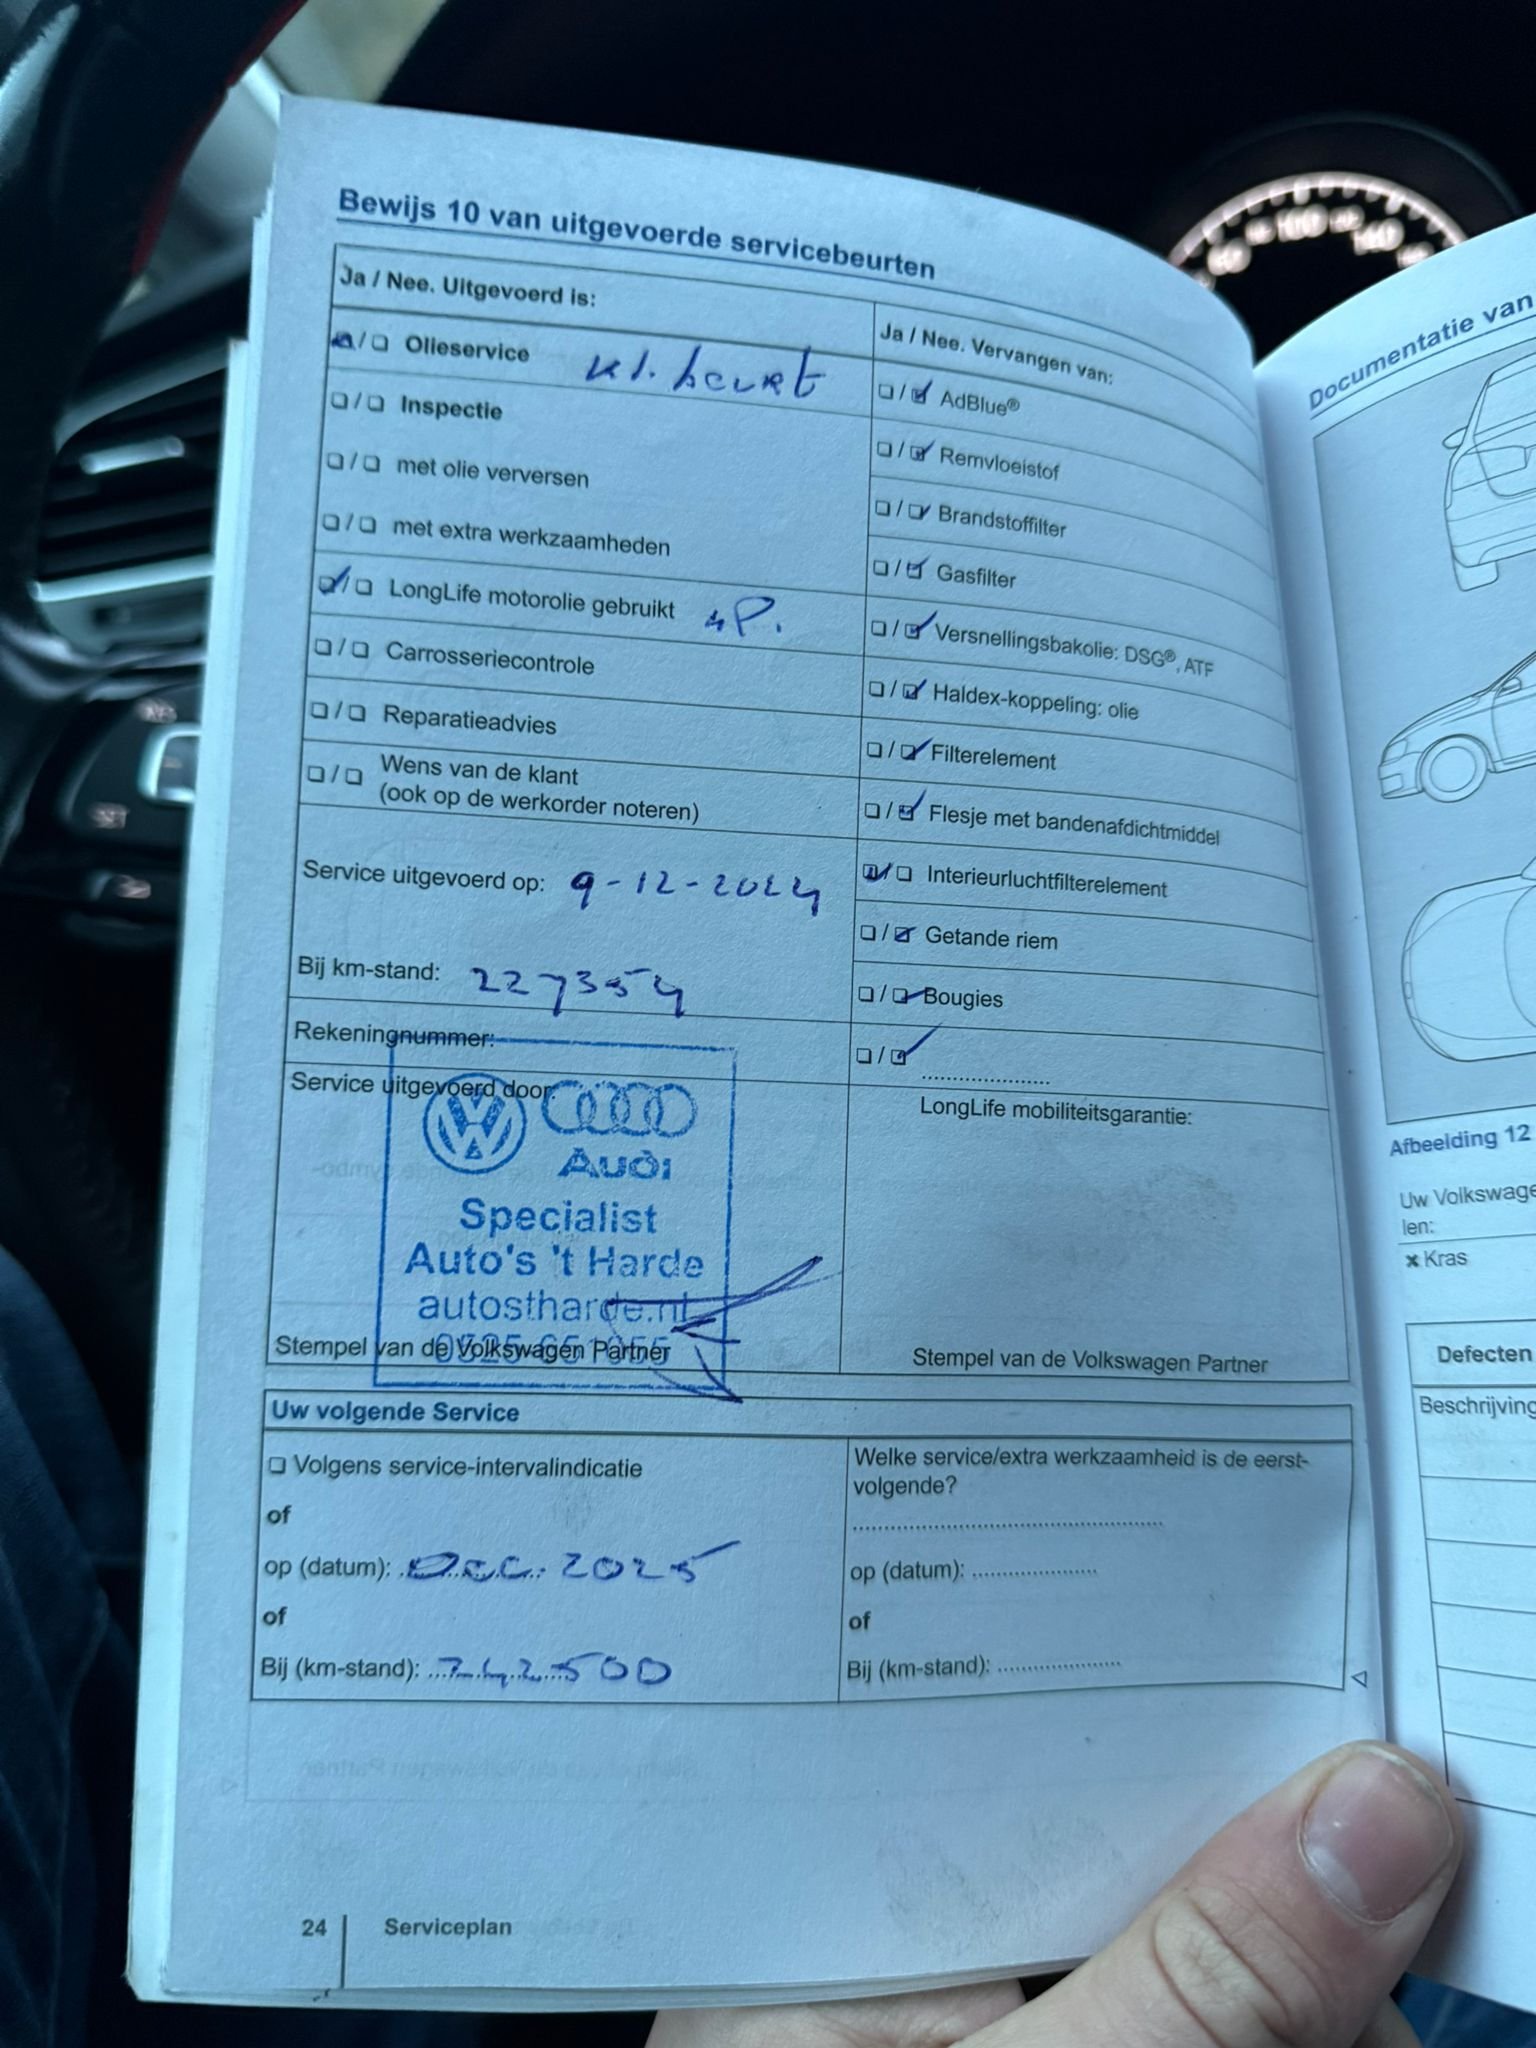 Bewijs 10 van uitgevoerde servicebeurten
Ja / Nee. Uitgevoerd is:
❏/❏ Olieservice kl. beurt
❏/❏ Inspectie
❏/❏ met olie verversen
❏/❏ met extra werkzaamheden
❏/❏ LongLife motorolie gebruikt 4P.
❏/❏ Carrosseriecontrole
❏/❏ Reparatieadvies
❏/❏ Wens van de klant
(ook op de werkorder noteren)
Service uitgevoerd op: 9-12-2024
Bij km-stand: 227354
Rekeningnummer:
Service uitgevoerd door:
Audi
Specialist
Auto's 't Harde
autostharde.nl
Stempel van de Volkswagen Partner
Ja / Nee. Vervangen van:
❏/❏ AdBlue®
❏/❏ Remvloeistof
❏/❏ Brandstoffilter
❏/❏ Gasfilter
❏/❏ Versnellingsbakolie: DSG®, ATF
❏/❏ Haldex-koppeling: olie
❏/❏ Filterelement
❏/❏ Flesje met bandenafdichtmiddel
❏/❏ Interieurluchtfilterelement
❏/❏ Getande riem
❏/❏ Bougies
❏/❏ .....................
LongLife mobiliteitsgarantie:
Stempel van de Volkswagen Partner
Uw volgende Service
❏ Volgens service-intervalindicatie
of
op (datum): Dec. 2025
of
Bij (km-stand): 242500
Welke service/extra werkzaamheid is de eerst-
volgende?
....................................................
op (datum): .....................
of
Bij (km-stand): .....................
24 Serviceplan
Documentatie van
Afbeelding 12
Uw Volkswage
len:
× Kras
Defecten
Beschrijving
100
140
SET